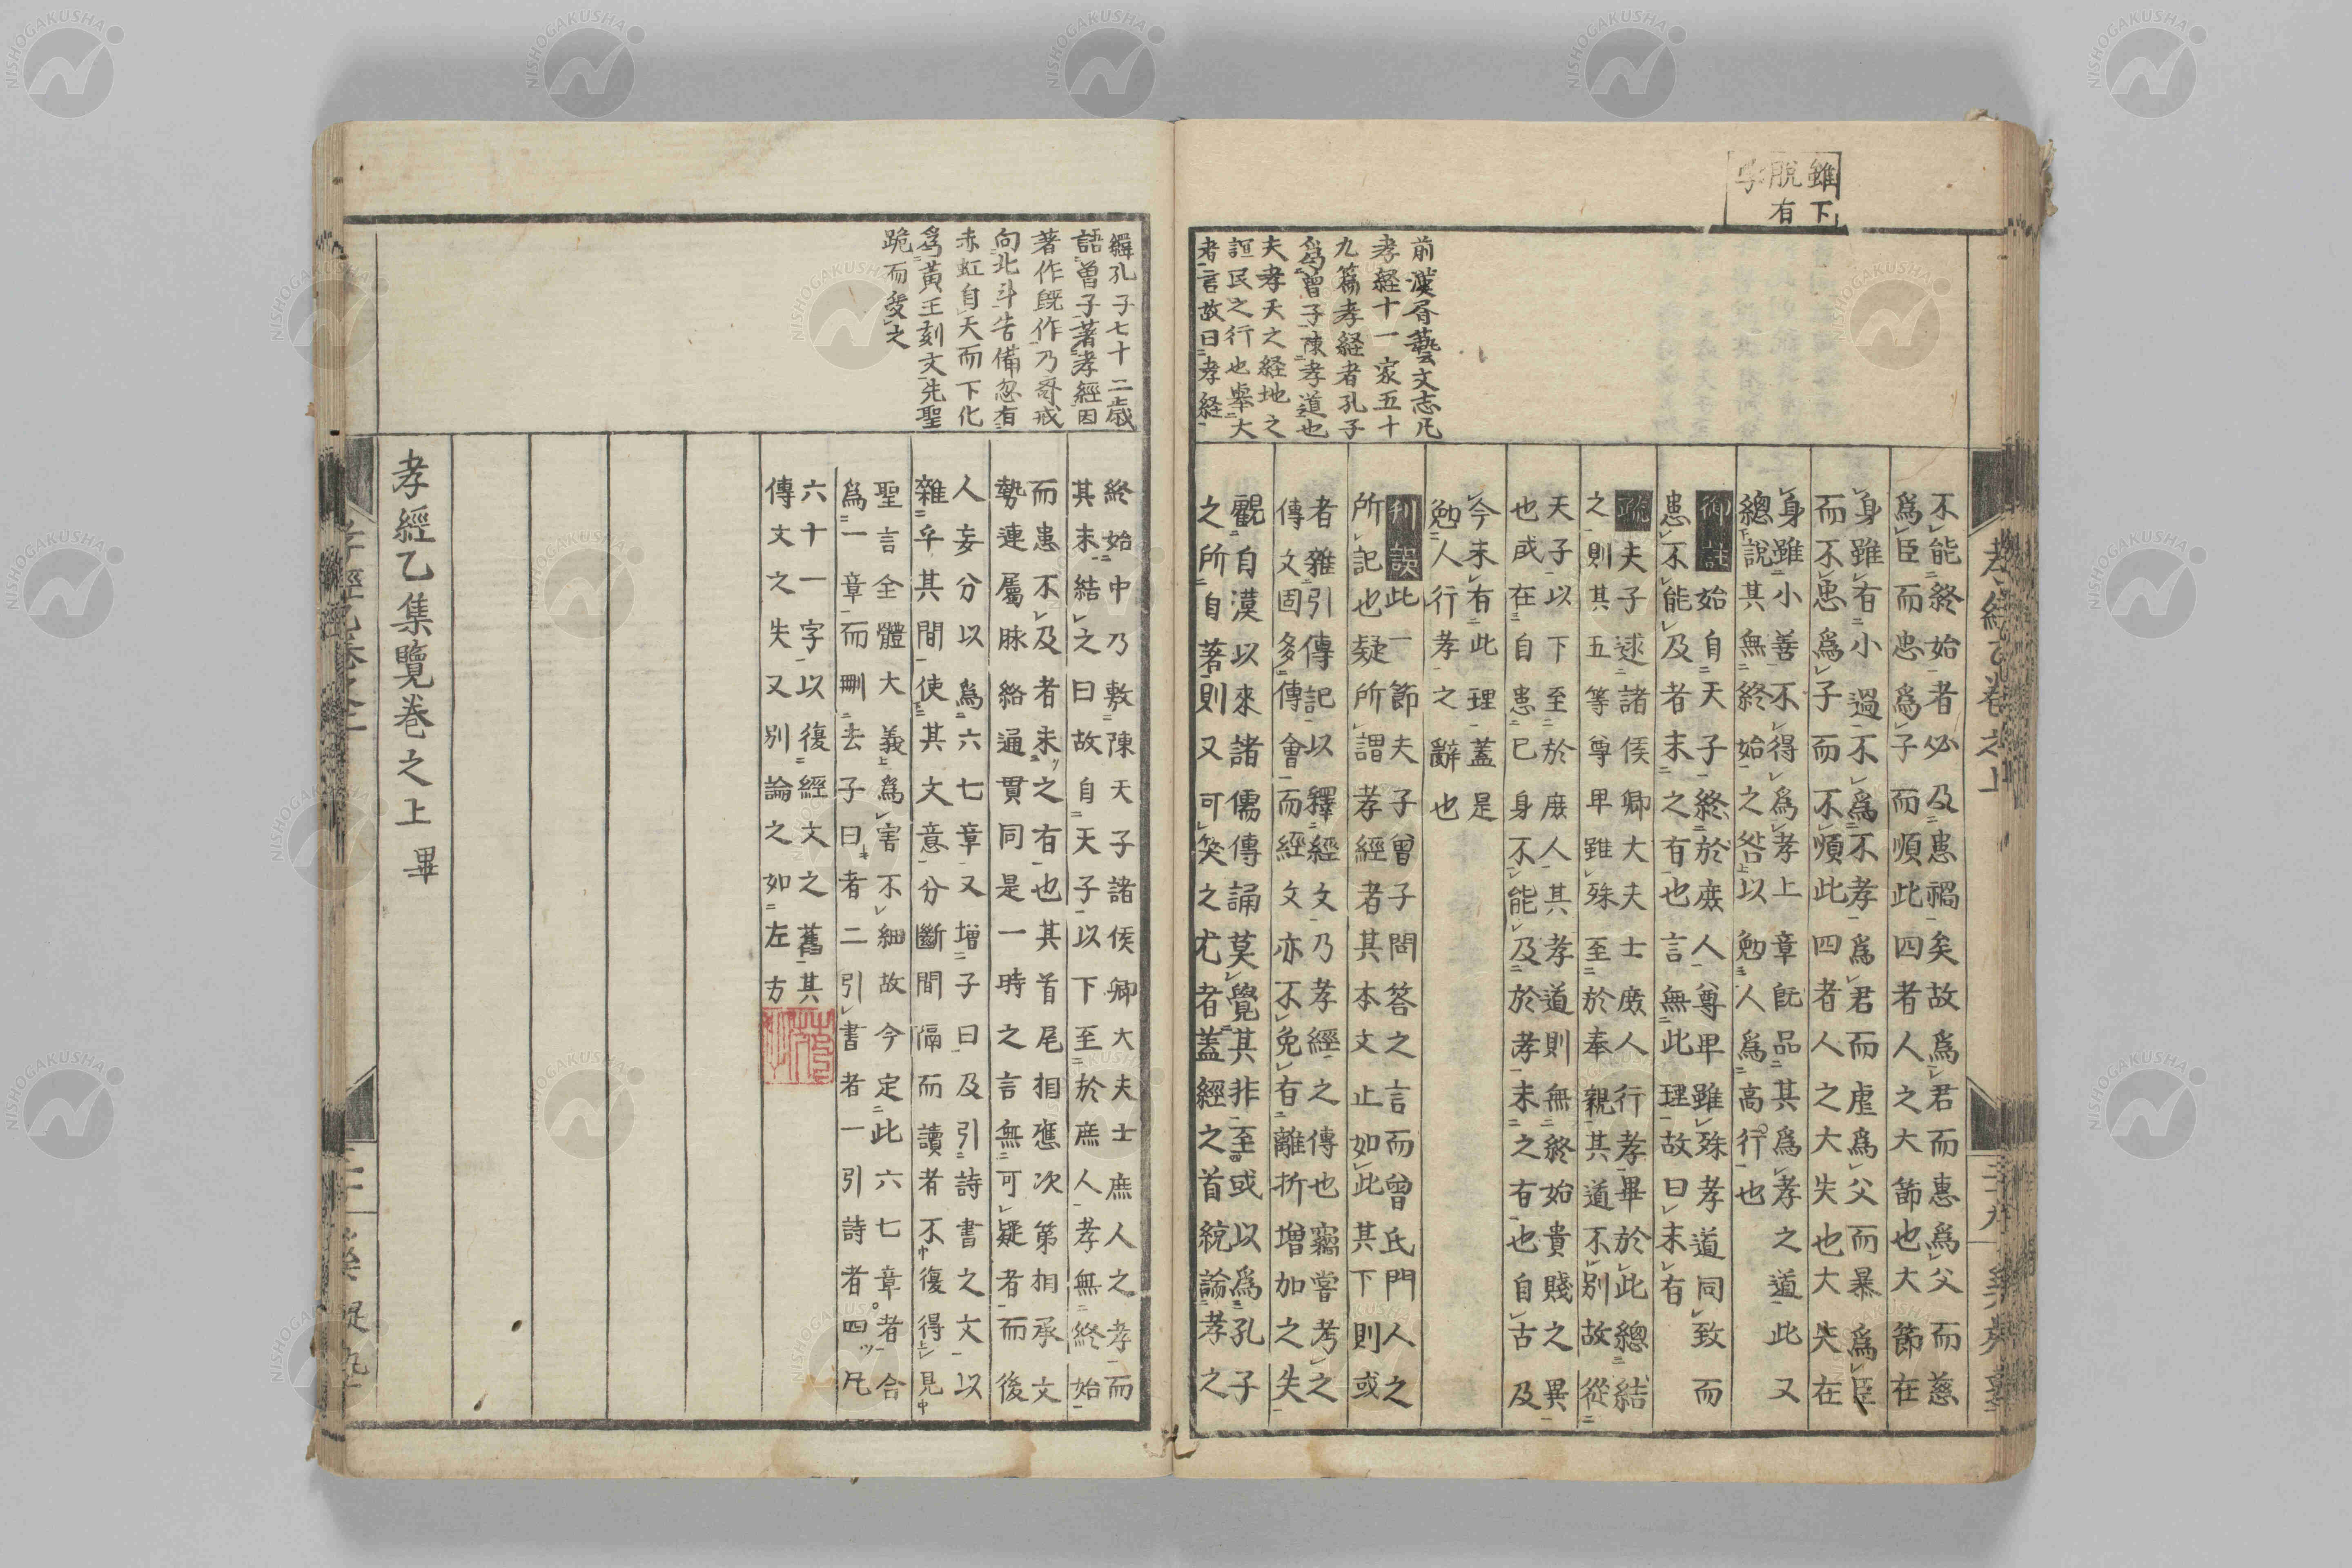 雖下
脫有
字
前漢眉藝文志凡
孝経十一家五十
九篇孝経者孔子
爲曽子陳孝道也
夫孝天之経地之
誼民之行也舉大
者言故曰孝経
不能終始者必及患禍矣故爲君而惠爲父而慈
爲臣而忠爲子而順此四者人之大節也大節在
身雖有小過不爲不孝爲君而虐爲父而暴爲臣
而不忠爲子而不順此四者人之大失也大失在
身雖小善不得爲孝上章既品其爲孝之道此又
總說其無終始之咎以勉人爲高行也
御註始自天子終於庶人尊卑雖殊孝道同致而
患不能及者未之有也言無此理故曰未有
疏夫子述諸侯卿大夫士庶人行孝畢於此總結
之則其五等尊卑雖殊至於奉親其道不別故從
天子以下至於庶人其孝道則無終始貴賤之異
也或在自患已身不能及於孝未之有也自古及
今未有此理蓋是
勉人行孝之辭也
刊誤此一節夫子曾子問答之言而曾氏門人之
所記也疑所謂孝經者其本文止如此其下則或
者雜引傳記以釋經文乃孝經之傳也竊嘗考之
傳文固多傳會而經文亦不免有離折增加之失
觀自漢以來諸儒傳誦莫覺其非至或以爲孔子
之所自著則又可笑之尤者蓋經之首統論孝之
孝經乙卷之上
緝孔子七十二歲
語曽子著孝經因
著作既作乃哥戒
向北斗告備忽有
赤虹自天而下化
爲黃王刻文先聖
跪而受之
終始中乃敷陳天子諸侯卿大夫士庶人之孝而
其末結之曰故自天子以下至於庶人孝無終始
而患不及者未之有也其首尾相應次第相承文
勢連屬脉絡通貫同是一時之言無可疑者而後
人妄分以爲六七章又增子曰及引詩書之文以
雜乎其間使其文意分斷間隔而讀者不復得見
聖言全體大義爲害不細故今定此六七章者合
爲一章而刪去子曰者二引書者一引詩者四凡
六十一字以復經文之舊其
傳文之失又別論之如左方
孝經乙集覽巻之上 畢